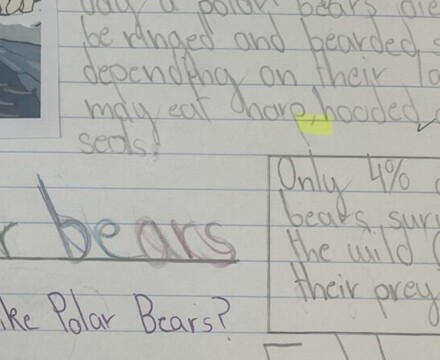 day a polar bears die
be ringed and bearded s
depending on their lo
may eat harp, hooded
seals.
Only 4%
bears sur
the wild (
their prey
r bears
ke Polar Bears?